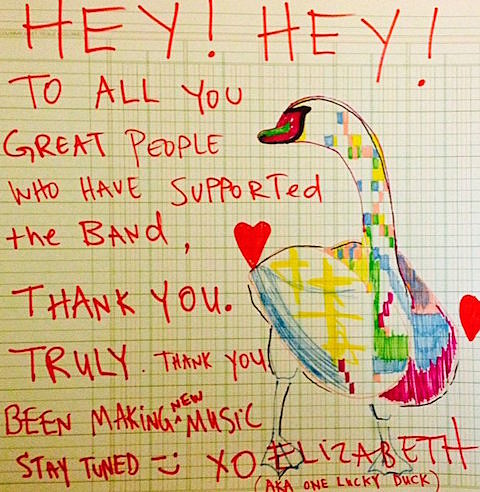 HEY! HEY!
TO ALL YOU
GREAT PEOPLE
WHO HAVE SUPPORTed
the BAND,
THANK YOU.
TRULY. THANK YOU
BEEN MAKING NEW MUSIC
STAY TUNED :) XO ELIZABETH
(AKA ONE LUCKY DUCK)